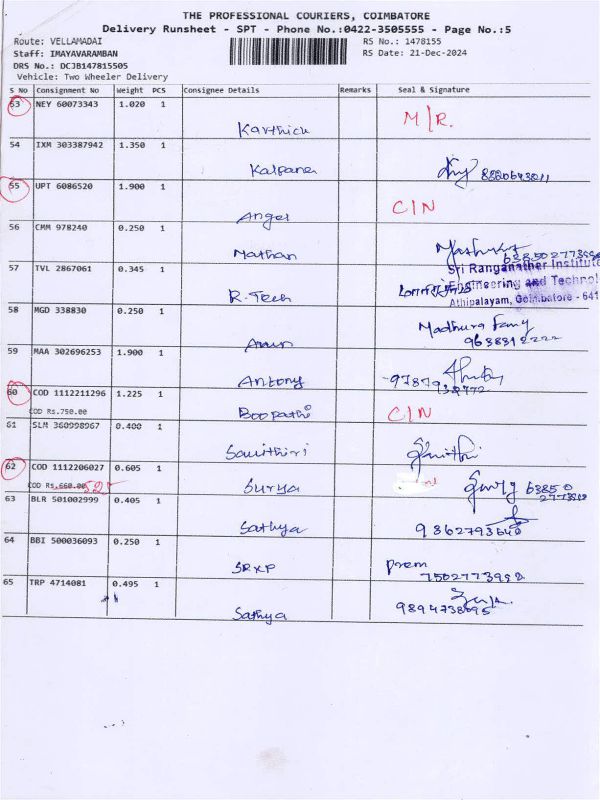 THE PROFESSIONAL COURIERS, COIMBATORE
Delivery Runsheet - SPT - Phone No.:0422-3505555 - Page No.:5
Route: VELLAMADAI RS No.: 1478155
Staff: IMAYAVARAMBAN RS Date: 21-Dec-2024
DRS No.: DCJB147815505
Vehicle: Two Wheeler Delivery
S No Consignment No Weight PCS Consignee Details Remarks Seal & Signature
53 NEY 60073343 1.020 1
Karthick M/R.
54 IXM 303387942 1.350 1
Kalpana
55 UPT 6086520 1.900 1
Angel CIN
56 CMM 978240 0.250 1
Mathan
57 TVL 2867061 0.345 1
R. Tech
Sri Ranganather Institute
Engineering and Technol
Athipalayam, Coimbatore - 641
58 MGD 338830 0.250 1
Arun Madhura Fancy
9638812222
59 MAA 302696253 1.900 1
Antony
60 COD 1112211296 1.225 1
COD Rs.750.00 Boopathi CIN
61 SLM 360998967 0.400 1
Savithiri
62 COD 1112206027 0.605 1
COD Rs.660.00 525 Surya
63 BLR 501002999 0.405 1
Sathya 9862793640
64 BBI 500036093 0.250 1
SRXP Prem
7502773992
65 TRP 4714081 0.495 1
Sathya 9894738095